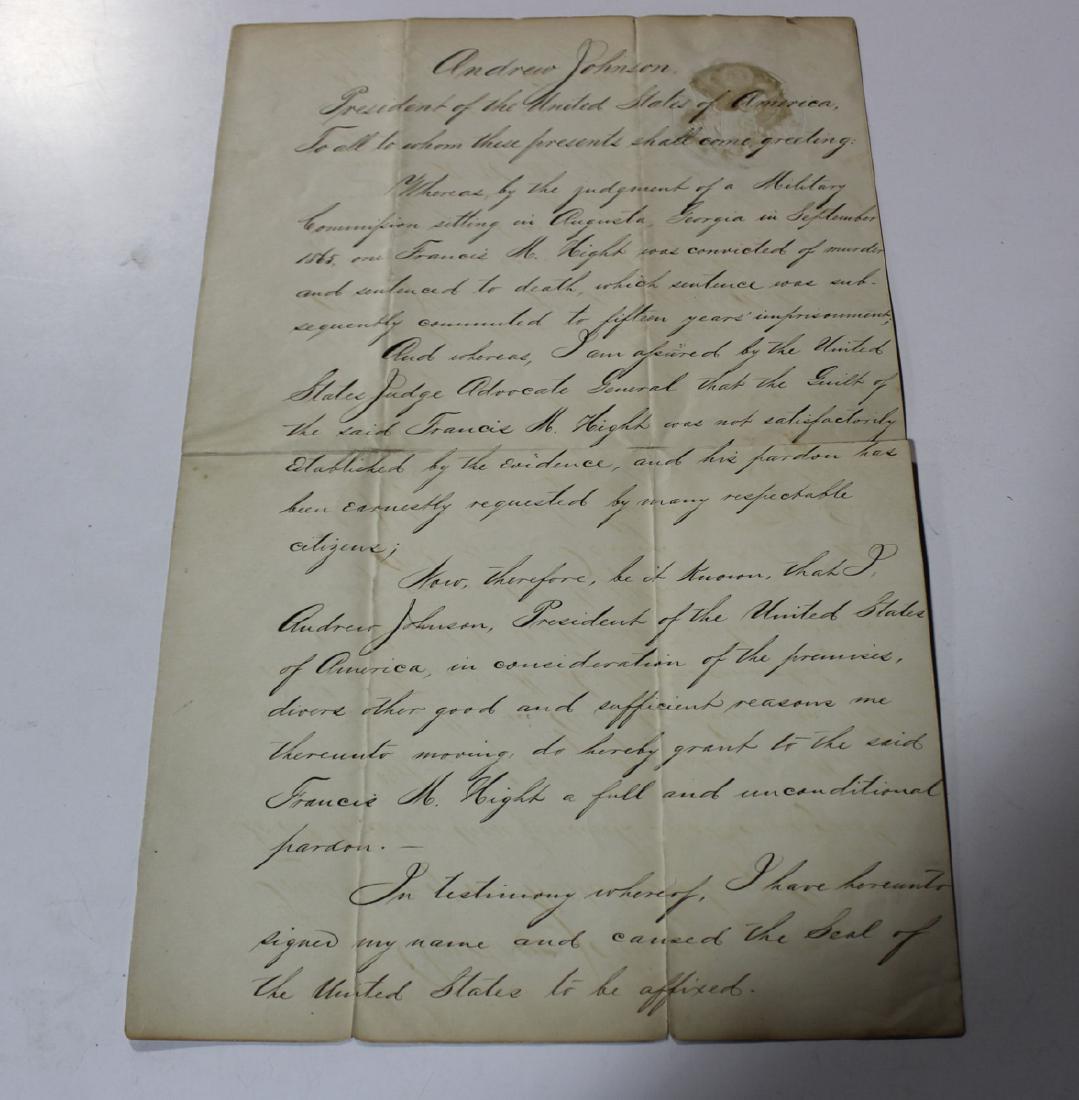 Andrew Johnson.
President of the United States of America,
To all to whom these presents shall come, greeting:
Whereas, by the judgment of a Military
Commission sitting in Augusta, Georgia in September
1865, one Francis M. Hight was convicted of murder
and sentenced to death, which sentence was sub-
sequently commuted to fifteen years' imprisonment;
And whereas, I am assured by the United
States Judge Advocate General that the Guilt of
the said Francis M. Hight was not satisfactorily
established by the evidence, and his pardon has
been earnestly requested by many respectable
citizens;
Now, therefore, be it known, that I,
Andrew Johnson, President of the United States
of America, in consideration of the premises,
divers other good and sufficient reasons me
thereunto moving, do hereby grant to the said
Francis M. Hight a full and unconditional
pardon. —
In testimony whereof, I have hereunto
signed my name and caused the Seal of
the United States to be affixed.